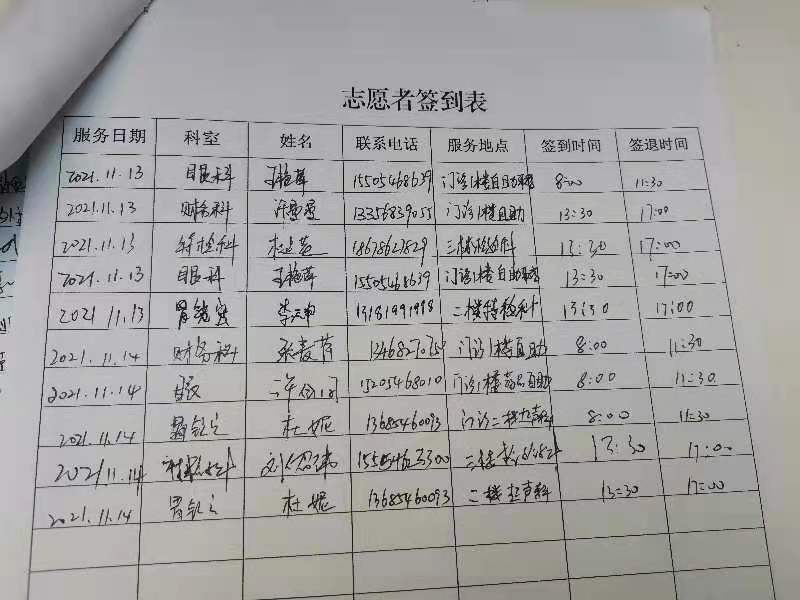 志愿者签到表
服务日期 科室 姓名 联系电话 服务地点 签到时间 签退时间
2021.11.13 眼科 15505468639 门诊1楼自助 8:00 11:30
2021.11.13 财务科 13356839055 门诊1楼自助 13:30 17:00
2021.11.13 特检科 18678627829 三楼检验科 13:30 17:00
2021.11.13 眼科 15505468639 门诊1楼自助 13:30 17:00
2021.11.13 胃镜室 李云申 13181991998 二楼特检科 13:30 17:00
2021.11.14 财务科 8:00 11:30
2021.11.14 15205468010 门诊1楼 自助 8:00 11:30
2021.11.14 胃镜室 杜妮 13685460093 门诊二楼 8:00 11:30
2021.11.14 13:30 17:00
2021.11.14 胃镜室 杜妮 13685460093 二楼超声科 13:30 17:00